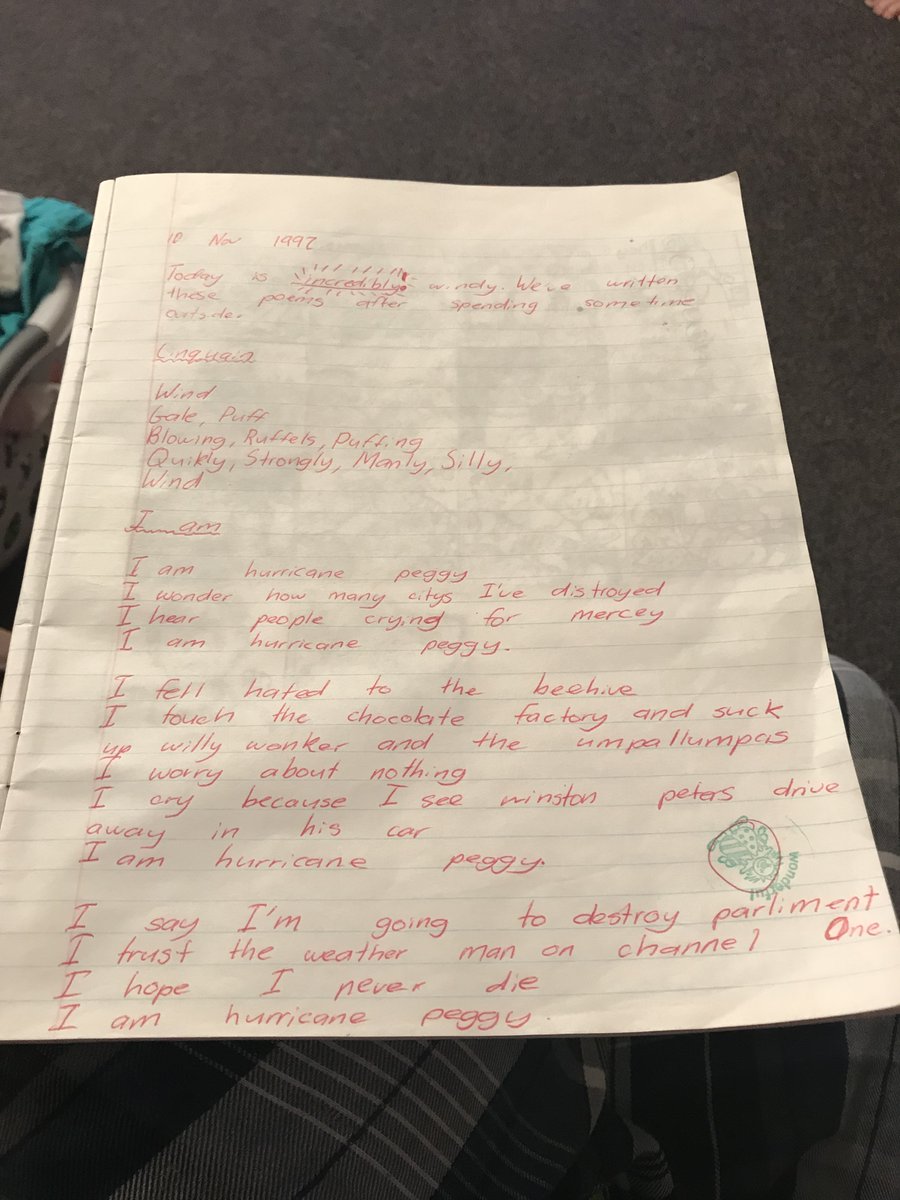 10 Nov 1997
Today is incredibly windy. We've written
these poems after spending sometime
outside.
Cinquain
Wind
Gale, Puff
Blowing, Ruffels, Puffing
Quikly, Strongly, Manly, Silly,
Wind
I am
I am hurricane peggy
I wonder how many citys I've distroyed
I hear people crying for mercey
I am hurricane peggy.
I fell hated to the beehive
I touch the chocolate factory and suck
up willy wonker and the umpallumpas
I worry about nothing
I cry because I see winston peters drive
away in his car
I am hurricane peggy.
wonderful
I say I'm going to destroy parliment
I trust the weather man on channel One.
I hope I never die
I am hurricane peggy